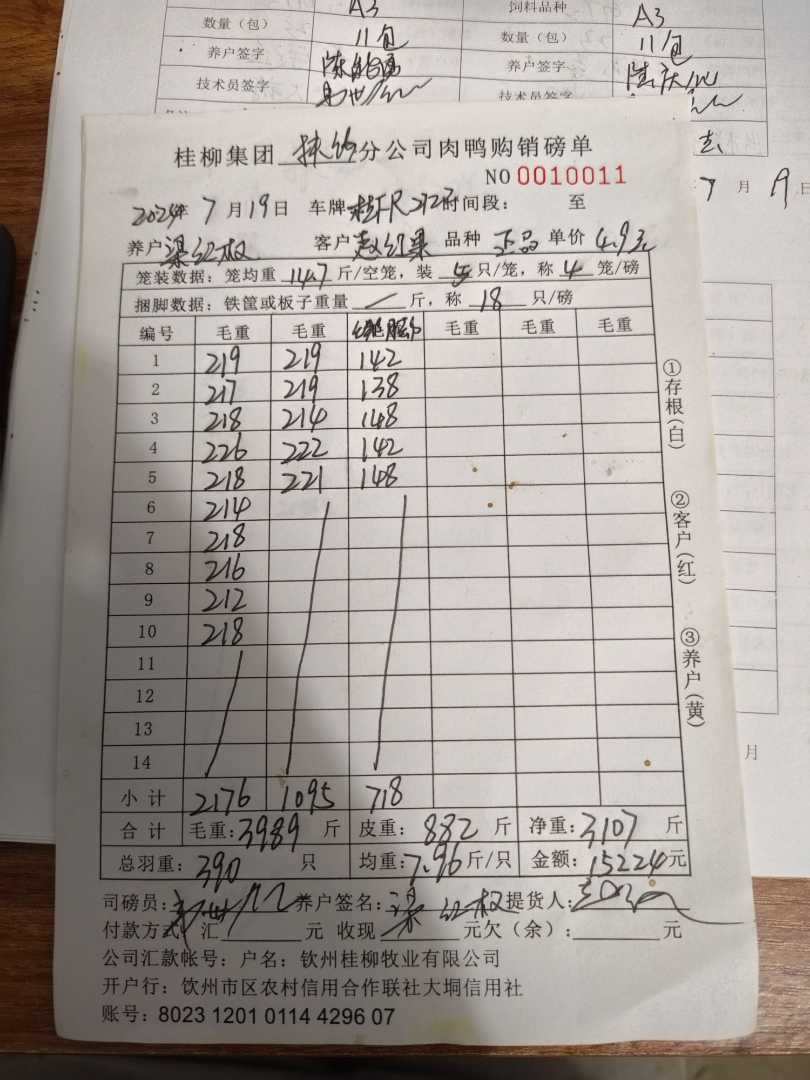 A3 饲料品种 A3
数量（包） 11包 数量（包） 11包
养户签字 养户签字
技术员签字 技术员签字
桂柳集团 分公司肉鸭购销磅单
NO 0010011
2024年 7月19日 车牌 时间段： 至
7月19日
养户 梁红权 客户 赵红果 品种 正品 单价 4.9元
笼装数据：笼均重 14.7 斤/空笼，装 5 只/笼，称 4 笼/磅
捆脚数据：铁筐或板子重量 / 斤，称 18 只/磅
编号 毛重 毛重 毛重 毛重 毛重
1 219 219 142
2 217 219 138
3 218 214 148
4 226 222 142
5 218 221 148
6 214
7 218
8 216
9 212
10 218
11
12
13
14
小计 2176 1095 718
合计 毛重：3989 斤 皮重：882 斤 净重：3107 斤
总羽重：390 只 均重：7.96 斤/只 金额：15224元
司磅员： 养户签名：梁红权 提货人：
付款方式 汇 元 收现 元欠（余）： 元
公司汇款帐号：户名：钦州桂柳牧业有限公司
开户行：钦州市区农村信用合作联社大垌信用社
账号：8023 1201 0114 4296 07
①存根（白）
②客户（红）
③养户（黄）
月